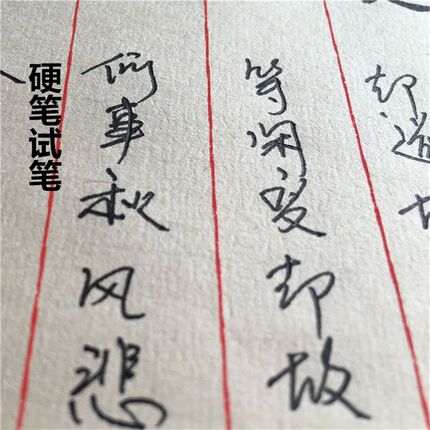 硬笔试笔
何事秋风悲
等闲变却故
却道